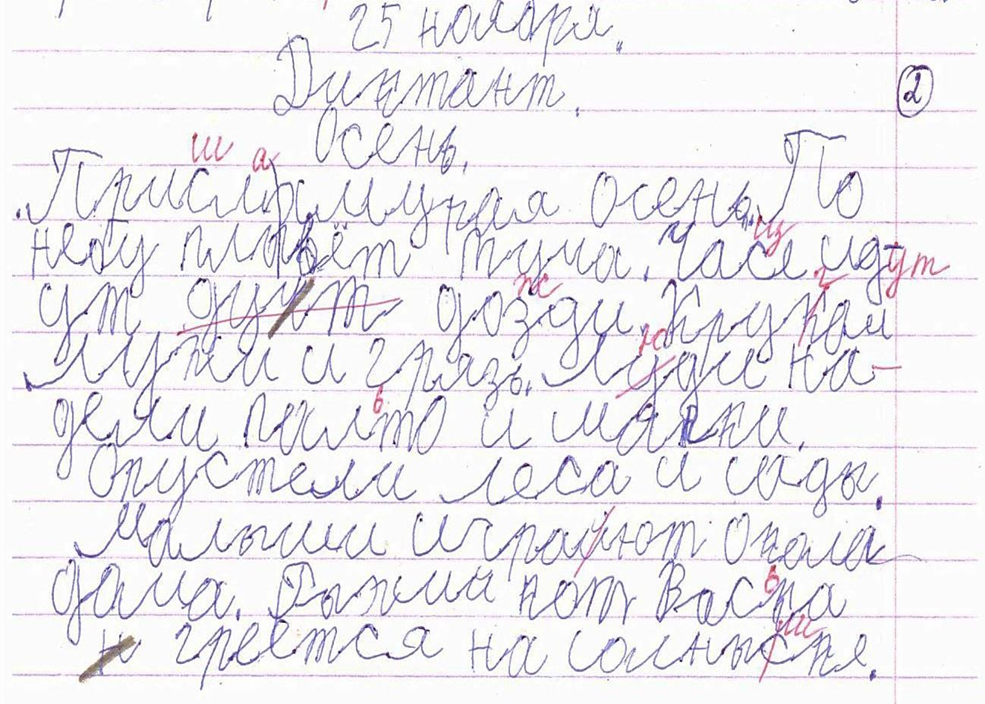 25 ноября.
Диктант.
2
Осень.
ш а
Присла хмурая осень. По
небу плывёт туча. Часе идут
ут дуут дозди. Крукам
лужи и грязь. Луди на-
дели палто и шапки.
Опустели леса и сады.
Малыши играйют около
дома. Рыжий кот Васка
греется на солныске.